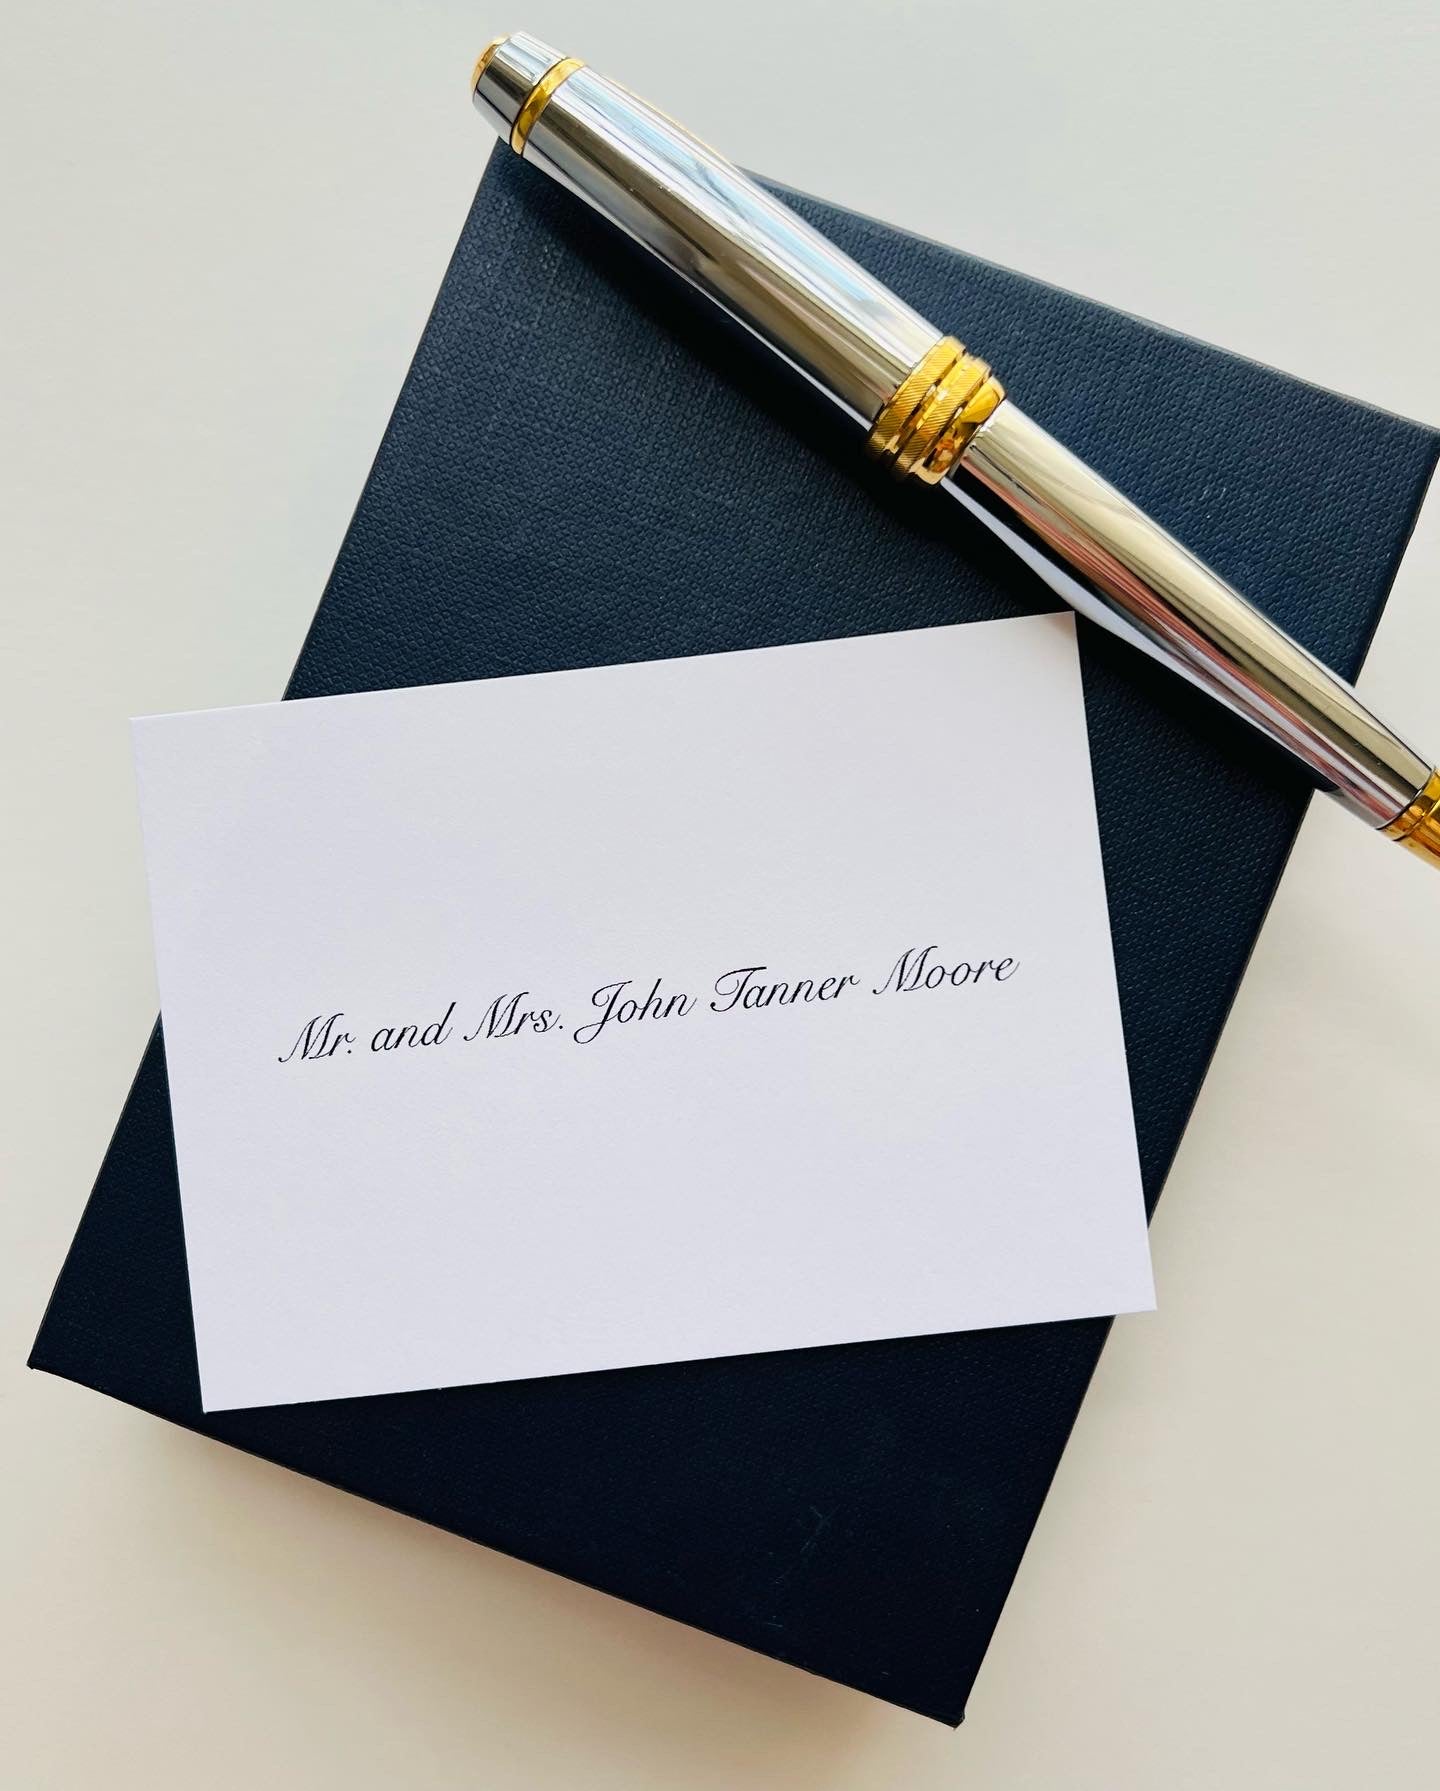 Mr. and Mrs. John Tanner Moore